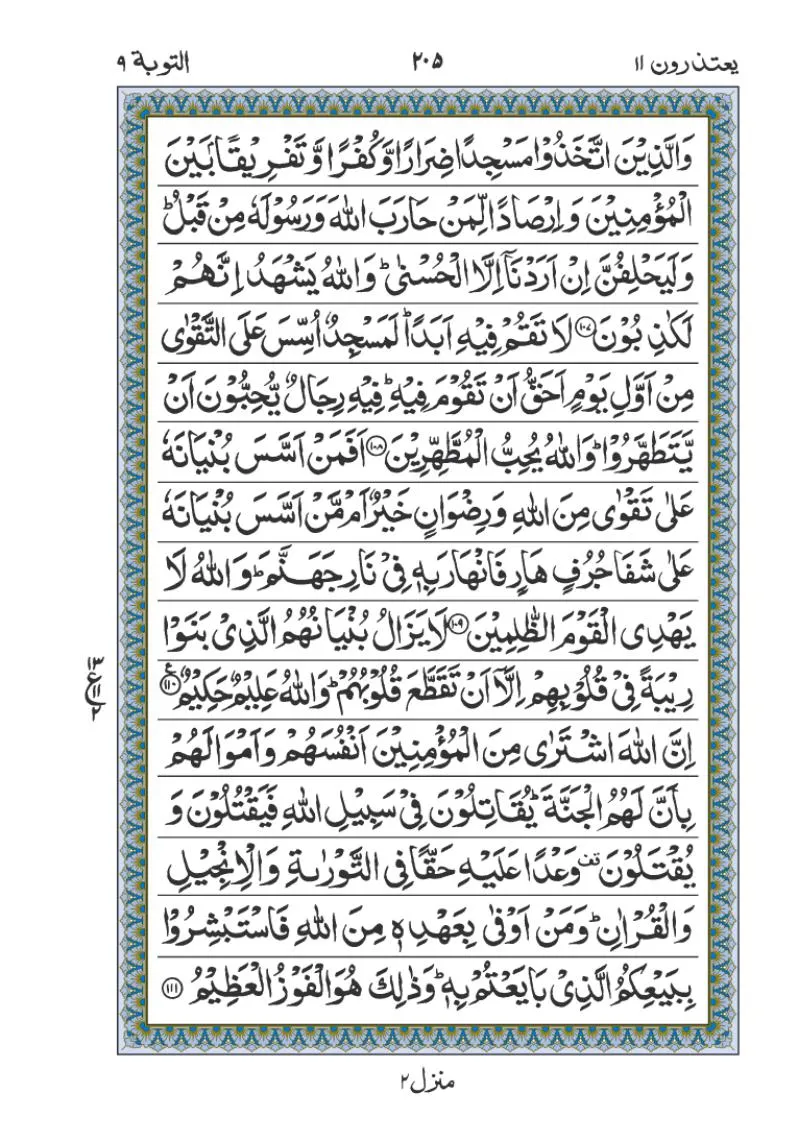 یعتذرون ۱۱ ۲۰۵ التوبة ۹
وَالَّذِیْنَ اتَّخَذُوْا مَسْجِدًا ضِرَارًا وَّ كُفْرًا وَّ تَفْرِیْقًۢا بَیْنَ
الْمُؤْمِنِیْنَ وَ اِرْصَادًا لِّمَنْ حَارَبَ اللّٰهَ وَ رَسُوْلَهٗ مِنْ قَبْلُ ؕ
وَ لَیَحْلِفُنَّ اِنْ اَرَدْنَاۤ اِلَّا الْحُسْنٰی ؕ وَ اللّٰهُ یَشْهَدُ اِنَّهُمْ
لَكٰذِبُوْنَ ﴿۱۰۷﴾ لَا تَقُمْ فِیْهِ اَبَدًا ؕ لَمَسْجِدٌ اُسِّسَ عَلَی التَّقْوٰی
مِنْ اَوَّلِ یَوْمٍ اَحَقُّ اَنْ تَقُوْمَ فِیْهِ ؕ فِیْهِ رِجَالٌ یُّحِبُّوْنَ اَنْ
یَّتَطَهَّرُوْا ؕ وَ اللّٰهُ یُحِبُّ الْمُطَّهِّرِیْنَ ﴿۱۰۸﴾ اَفَمَنْ اَسَّسَ بُنْیَانَهٗ
عَلٰی تَقْوٰی مِنَ اللّٰهِ وَ رِضْوَانٍ خَیْرٌ اَمْ مَّنْ اَسَّسَ بُنْیَانَهٗ
عَلٰی شَفَا جُرُفٍ هَارٍ فَانْهَارَ بِهٖ فِیْ نَارِ جَهَنَّمَ ؕ وَ اللّٰهُ لَا
یَهْدِی الْقَوْمَ الظّٰلِمِیْنَ ﴿۱۰۹﴾ لَا یَزَالُ بُنْیَانُهُمُ الَّذِیْ بَنَوْا
رِیْبَةً فِیْ قُلُوْبِهِمْ اِلَّاۤ اَنْ تَقَطَّعَ قُلُوْبُهُمْ ؕ وَ اللّٰهُ عَلِیْمٌ حَكِیْمٌ ﴿۱۱۰﴾ ع
۱۳
ع ۱۱
۲
اِنَّ اللّٰهَ اشْتَرٰی مِنَ الْمُؤْمِنِیْنَ اَنْفُسَهُمْ وَ اَمْوَالَهُمْ
بِاَنَّ لَهُمُ الْجَنَّةَ ؕ یُقَاتِلُوْنَ فِیْ سَبِیْلِ اللّٰهِ فَیَقْتُلُوْنَ وَ
یُقْتَلُوْنَ قف وَعْدًا عَلَیْهِ حَقًّا فِی التَّوْرٰىةِ وَ الْاِنْجِیْلِ
وَ الْقُرْاٰنِ ؕ وَ مَنْ اَوْفٰی بِعَهْدِهٖ مِنَ اللّٰهِ فَاسْتَبْشِرُوْا
بِبَیْعِكُمُ الَّذِیْ بَایَعْتُمْ بِهٖ ؕ وَ ذٰلِكَ هُوَ الْفَوْزُ الْعَظِیْمُ ﴿۱۱۱﴾
منزل ۲